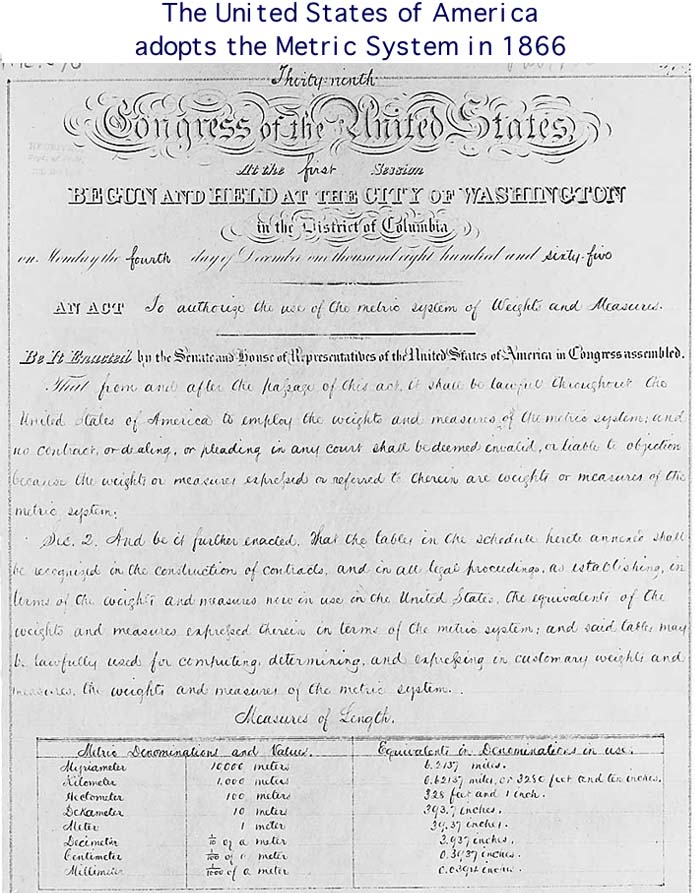 The United States of America
adopts the Metric System in 1866
Thirty-ninth
Congress of the United States,
At the first Session
BEGUN AND HELD AT THE CITY OF WASHINGTON
in the District of Columbia
on Monday the fourth day of December one thousand eight hundred and sixty-five
AN ACT To authorize the use of the metric system of Weights and Measures.
Be It Enacted by the Senate and House of Representatives of the United States of America in Congress assembled.
That from and after the passage of this act, it shall be lawful throughout the
United States of America to employ the weights and measures of the metric system; and
no contract, or dealing, or pleading in any court shall be deemed invalid, or liable to objection
because the weights or measures expressed or referred to therein are weights or measures of the
metric system;
Sec. 2. And be it further enacted, That the tables in the schedule hereto annexed shall
be recognized in the construction of contracts, and in all legal proceedings, as establishing, in
terms of the weights and measures now in use in the United States, the equivalents of the
weights and measures expressed therein in terms of the metric system; and said tables may
be lawfully used for computing, determining, and expressing in customary weights and
measures, the weights and measures of the metric system.
Measures of Length.
Metric Denominations and Values. Equivalents in Denominations in use.
Myriameter 10000 meters 6.2137 miles.
Kilometer 1,000 meters 0.62137 miles, or 3280 feet and ten inches.
Hectometer 100 meters 328 feet and 1 inch.
Dekameter 10 meters 393.7 inches.
Meter 1 meter 39.37 inches.
Decimeter 1/10 of a meter 3.937 inches.
Centimeter 1/100 of a meter 0.3937 inches.
Millimeter 1/1000 of a meter 0.0394 inches.